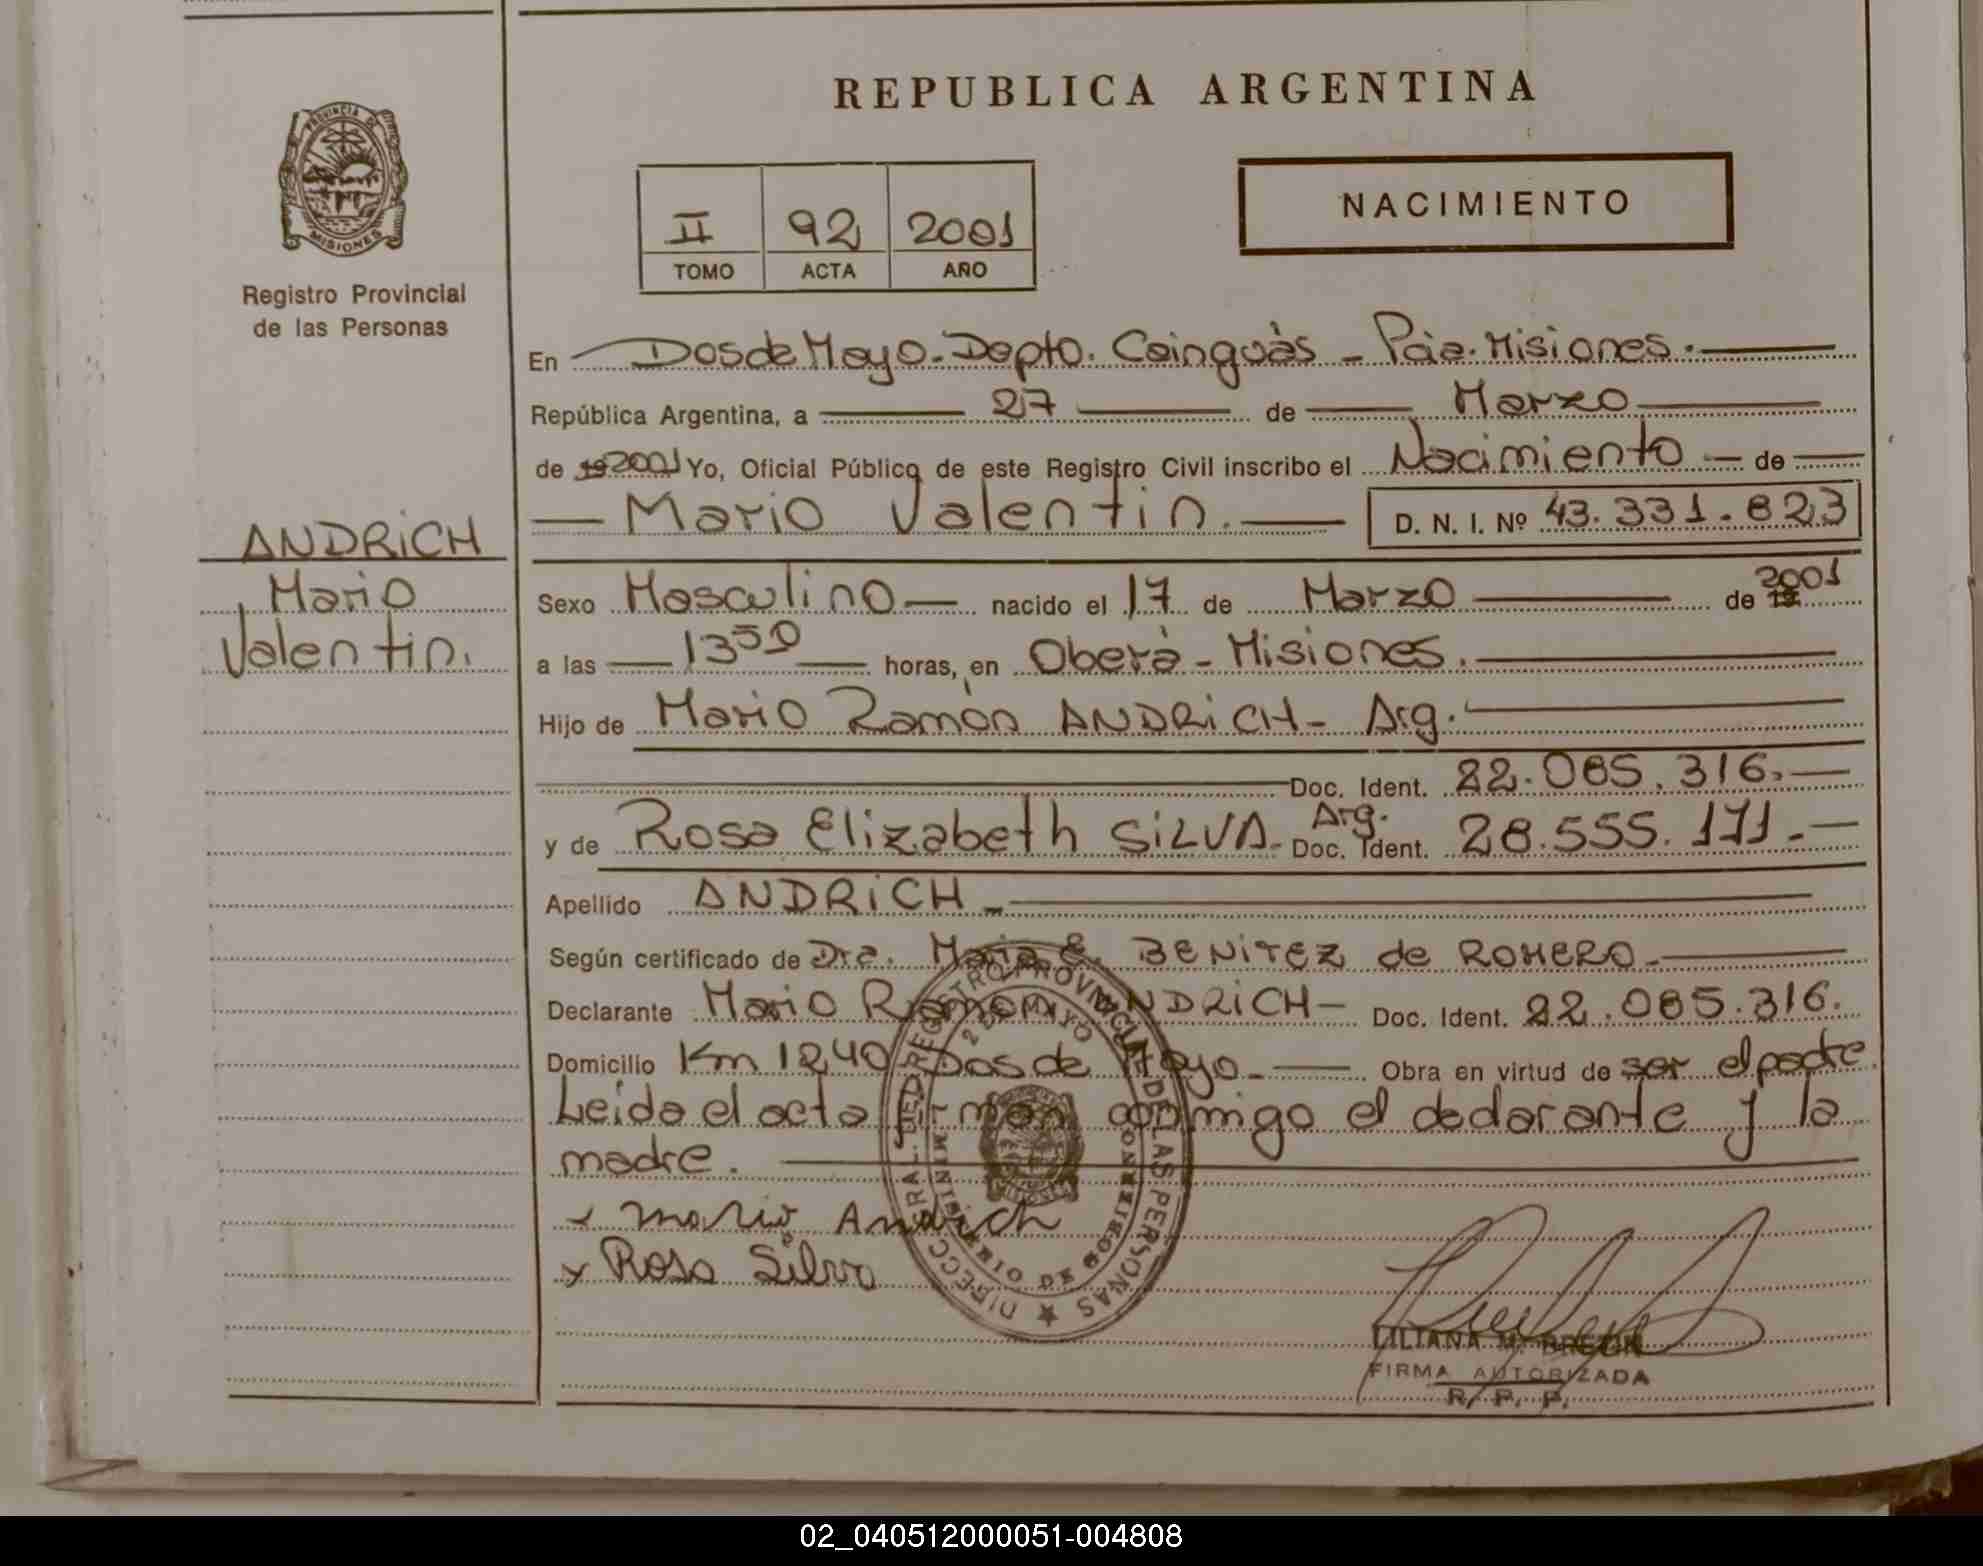 REPUBLICA ARGENTINA
PROVINCIA DE
MISIONES
Registro Provincial
de las Personas
II 92 2001
TOMO ACTA AÑO
NACIMIENTO
ANDRiCH
Mario
Valentin.
En Dos de Mayo - Depto. Cainguàs - Pcia. Misiones.
República Argentina, a 27 de Marzo
de 19 2001 Yo, Oficial Público de este Registro Civil inscribo el Nacimiento de
Mario Valentin. D. N. I. Nº 43.331.823
Sexo Masculino nacido el 17 de Marzo de 19 2001
a las 13 50 horas, en Oberà - Misiones.
Hijo de Mario Ramòn ANDRiCH - Arg.
Doc. Ident. 22.085.316.
y de Rosa Elizabeth SiLVA - Arg. Doc. Ident. 28.555.171.-
Apellido ANDRiCH -
Según certificado de Dra. Maria E. BENiTEZ de ROMERO -
Declarante Mario Ramon ANDRiCH - Doc. Ident. 22.085.316.
Domicilio Km 1240 Dos de Mayo - Obra en virtud de ser el padre
Leida el acta firman conmigo el declarante y la
madre.
x Mario Andrich
x Rosa Silva
DIRECC. GRAL. DEL REGISTRO PROVINCIAL DE LAS PERSONAS
2 DE MAYO
MINISTERIO DE GOBIERNO
LILIANA M. BREGIN
FIRMA AUTORIZADA
R. P. P.
02_040512000051-004808